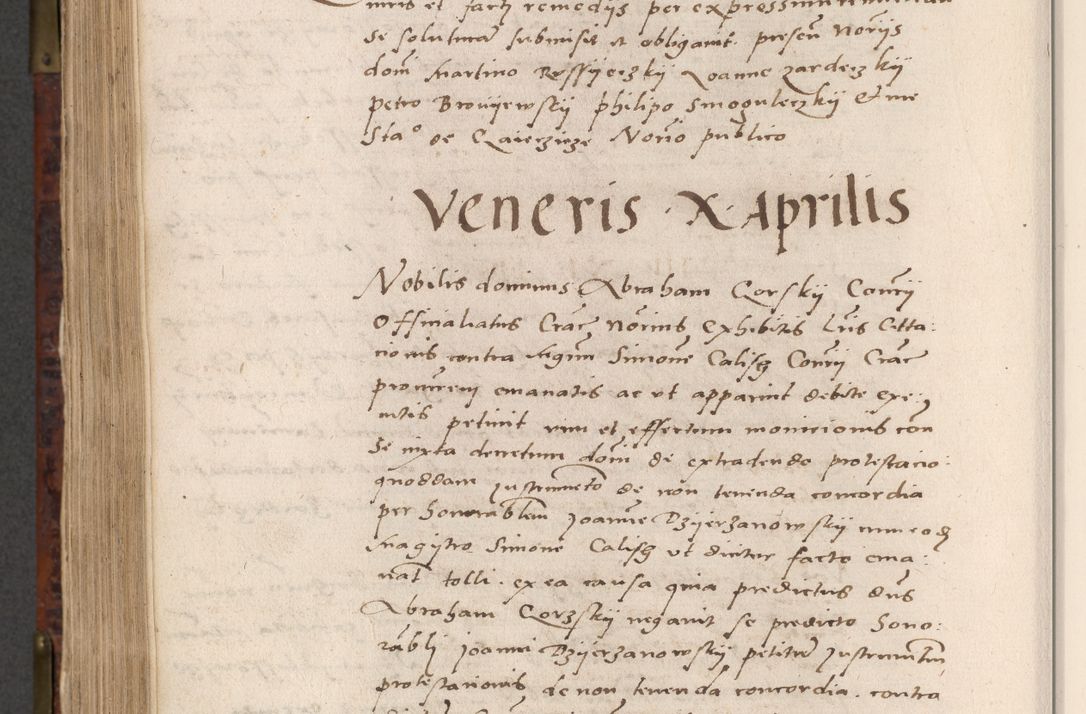 iuris et facti remediis per expressum
se solutum submisit et obligavit presen̄ Norijs
dom̄ Martino Joanne Zardeczkij
Petro Broniiewskij philipo Smoguleczkij & me
Sta° de Norio publico
Veneris · X · Aprilis
Nobilis dominus Abraham Gorskij Con̄rij
Officialatus Crac̄ nōrius Exhibitis Lrīs Citta:
cionis contra Mgrūm Simonē Calisȝ Con̄rij Crac̄
procūrem emanatis ac ut apparuit debite exe:
cutis petiuit vim et effectum monicionis con̄
se iuxta decretum dom̄ de extradendo protestacio:
quoddam Instrumēto de non tenenda concordia
per Honorablēm Joanne Dzijerzanowskij cum eod
Magistro Simone Calisȝ ut dicitur facto ema:
nat tolli. ex ea causa quia predictus dūs
Abraham Gorzskij negavit se predicto Hono:
rabli Joanni Dzijerzanowskij petitur Instrumentū
protestacionis de non tenenda concordia. contra